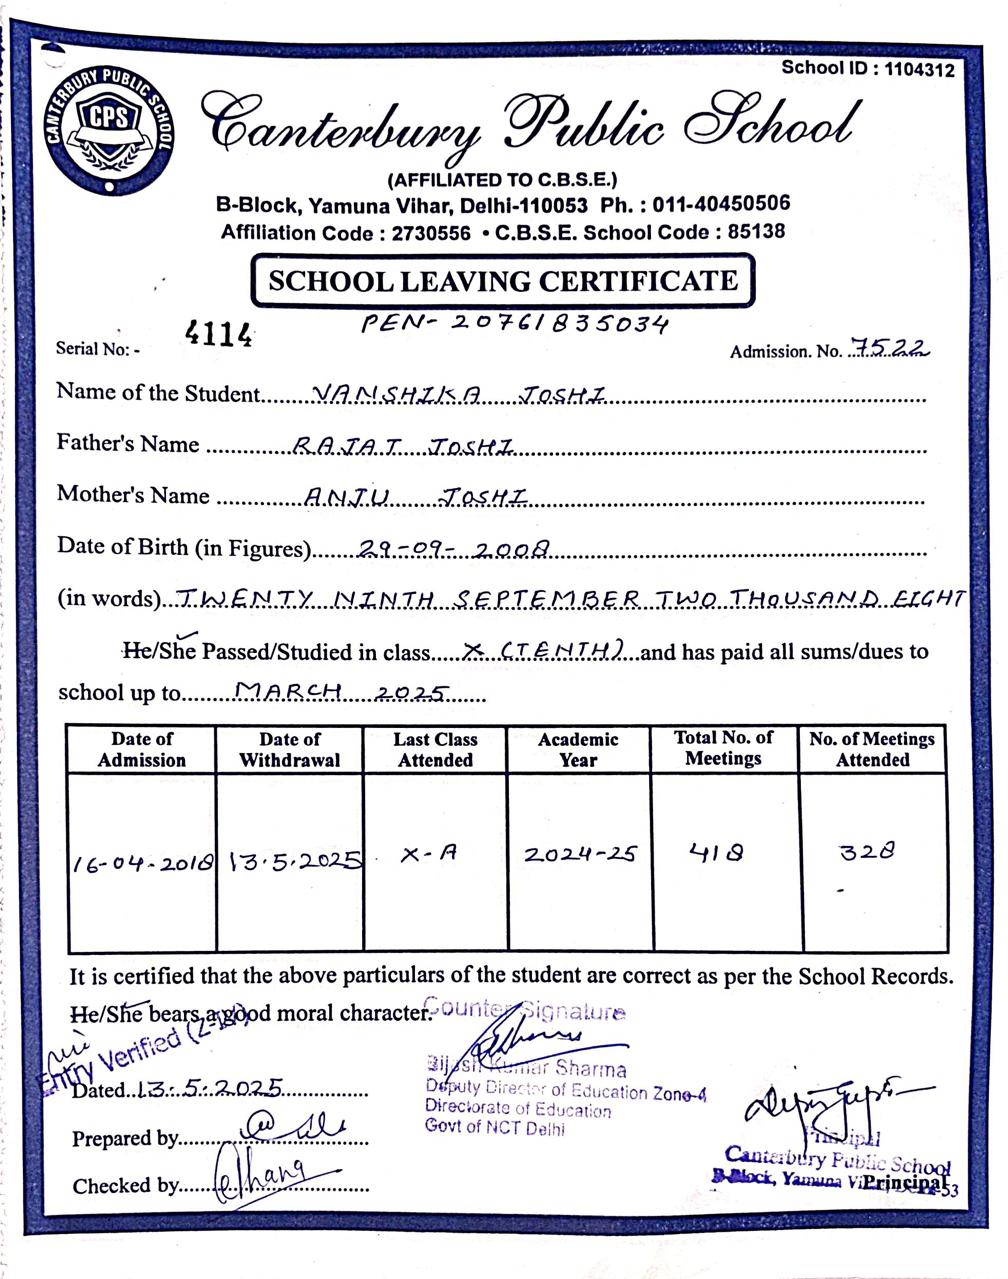 School ID : 1104312
CANTERBURY PUBLIC SCHOOL
CPS
Canterbury Public School
(AFFILIATED TO C.B.S.E.)
B-Block, Yamuna Vihar, Delhi-110053 Ph. : 011-40450506
Affiliation Code : 2730556 • C.B.S.E. School Code : 85138
SCHOOL LEAVING CERTIFICATE
PEN- 20761835034
Serial No: - 4114
Admission. No. 7522
Name of the Student VANSHIKA JOSHI
Father's Name RAJAT JOSHI
Mother's Name ANJU JOSHI
Date of Birth (in Figures) 29-09-2008
(in words) TWENTY NINTH SEPTEMBER TWO THOUSAND EIGHT
He/She Passed/Studied in class X (TENTH) and has paid all sums/dues to
school up to MARCH 2025
Date of Admission Date of Withdrawal Last Class Attended Academic Year Total No. of Meetings No. of Meetings Attended
16-04-2018 13.5.2025 X-A 2024-25 418 328
It is certified that the above particulars of the student are correct as per the School Records.
He/She bears a good moral character.
Counter Signature
Entry Verified
Bijesh Kumar Sharma
Deputy Director of Education Zone-4
Directorate of Education
Govt of NCT Delhi
Dated 13.5.2025
Prepared by
Checked by
Principal
Canterbury Public School
B-Block, Yamuna
Principal